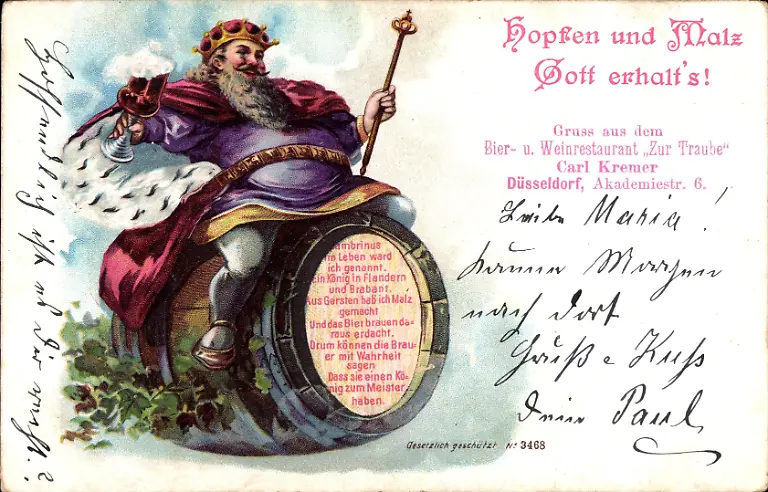 Hopfen und Malz
Gott erhalt's!
Gruss aus dem
Bier- u. Weinrestaurant „Zur Traube"
Carl Kremer
Düsseldorf, Akademiestr. 6.
Liebe Maria!
Komme Morgen
nach dort
Gruß e Kuss
Dein Paul
Hoffentlich ist es Dir recht?
ambrinus
im Leben ward
ich genannt.
Ein König in Flandern
und Brabant.
Aus Gersten hab ich Malz
gemacht
Und das Bierbrauen da-
raus erdacht.
Drum können die Brau-
er mit Wahrheit
sagen
Dass sie einen Kö-
nig zum Meister
haben.
Gesetzlich geschützt No 3468